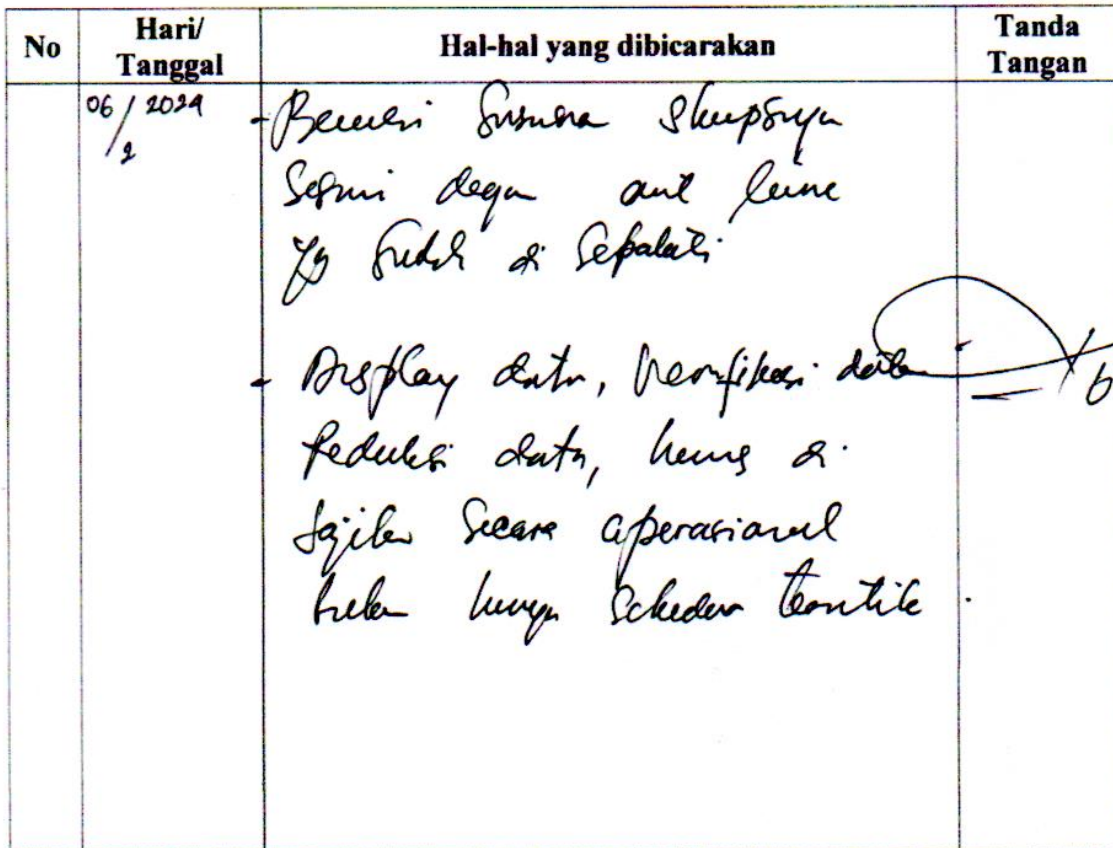 No
Hari/
Tanggal
Hal-hal yang dibicarakan
Tanda
Tangan
06/2024
- Susunan Skripsinya
Sesuai dengan out line
yg sudah di sepakati
- Display data, verifikasi data
Reduksi data, harus di
sajikan secara operasional
bukan hanya sekedar teoritik.